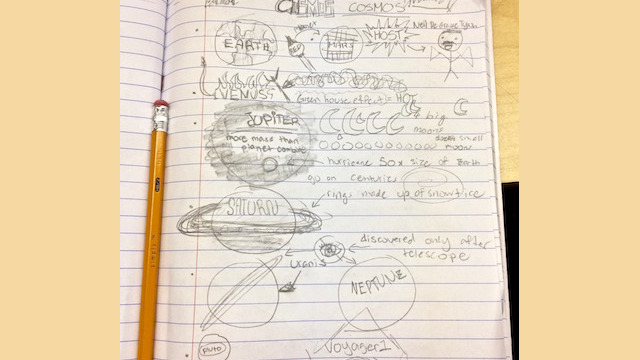 COSMOS
EARTH
MARS
HOST
Neil De Grasse Tyson
VENUS
Green house effect = HOT
JUPITER
4 big
moons
more mass than
all planet combine
small
moon
hurricane 50x size of Earth
go on centuries
rings made up of snow+ice
SATURN
discovered only after
telescope
Uranis
NEPTUNE
Voyager 1
pluto